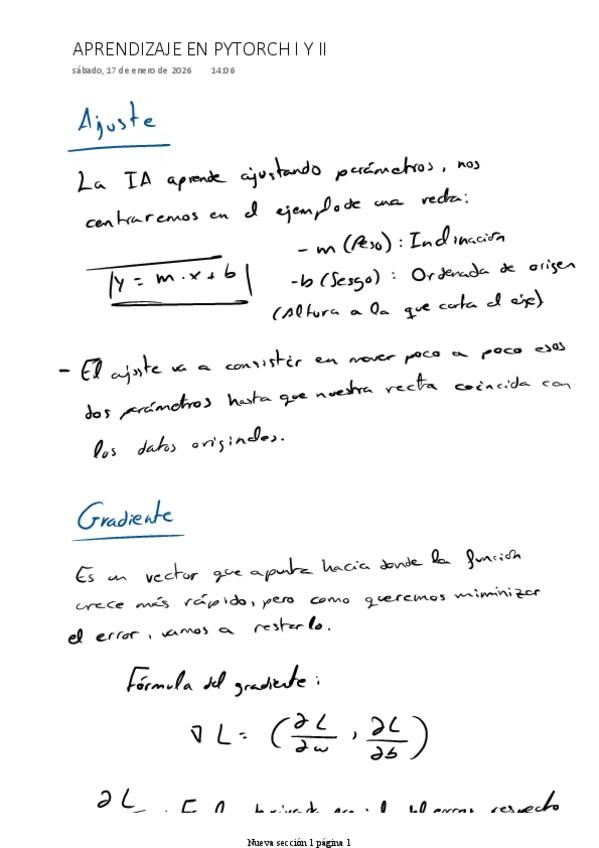 APRENDIZAJE EN PYTORCH I Y II
sábado, 17 de enero de 2026 14:06
Ajuste
La IA aprende ajustando parámetros, nos
centraremos en el ejemplo de una recta:
- m (Peso) : Inclinación
|y = m · x + b|
- b (Sesgo) : Ordenada de origen
(Altura a la que corta el eje)
- El ajuste va a consistir en mover poco a poco esos
dos parámetros hasta que nuestra recta coincida con
los datos originales.
Gradiente
Es un vector que apunta hacia donde la función
crece más rápido, pero como queremos miminizar
el error, vamos a restarlo.
Fórmula del gradiente:
∇ L = (∂L/∂w, ∂L/∂b)
∂L error respecto
Nueva sección 1 página 1